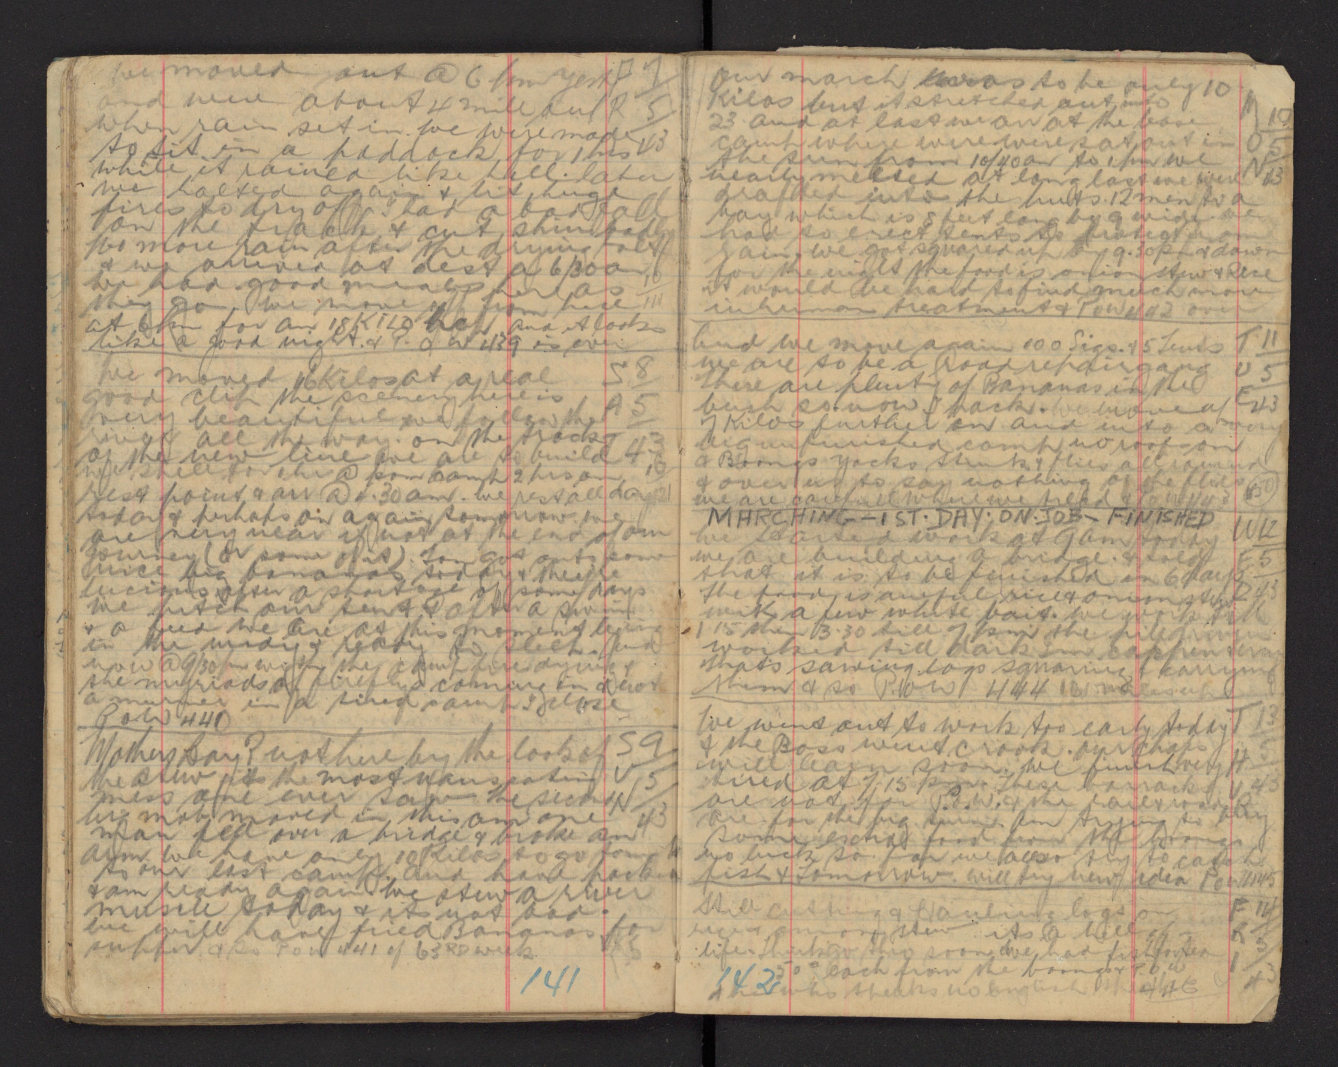 We moved out @ 6 pm yest F 7
and were about 4 mile out R 5
when rain set in. We were made I 43
to sit in a paddock for 1 hrs
while it rained like hell. later
we halted again & lit huge
fires to dry off. I had a bad fall
on the track & cut shin badly
No more rain after the drying halt
& we arrived at dest @ 6/30 am
we had good meals here as
they go. We move off from here
at 6 pm for an 18 KILO and it looks
like a good night. & P.O.W 439 is over
We moved 16 Kilos at a real S 8
good clip the scenery here is A 5
very beautiful & we follow the
river all the way. on the track T 43
of the new line we are to build
rest point & arr @ 30 am. we rest all day
today & perhaps on again tomorrow we
are very near if not at the end of our
journey (or some of it).
nice big bananas today & they're
lucious after a shortage of some days
We pitch our tent & after a swim
& a feed we are at this moment lying
in the nuddy & ready to sleep. and
now @ 9/30 pm with the camp fire dying &
the myriads of fireflys coming in & not
a murmer in a tired camp I close
P.O.W 440
Mothers Day? not here by the look of S 9
the stew its the most nauseating U 5
mess one ever saw. The second N 43
big mob moved in this am one
man fell over a bridge & broke an
arm we have only 10 Kilos to go
to our last camp. and have
& am ready again. We stew a river
mussle today & its not bad.
We will have fried Bananas for
supper. & so P.O.W 441 of 63RD week
141
our march was to be only 10 M 10
Kilos but it stretched out into O 5
23 and at last we arr at the base N 43
camp where we were sat out in
the sun from 10/40 am to 1 pm we
nearly melted at long last we were
drafted into the huts. 12 men to a
bay which is 8 feet long by 9 wide. we
had to erect tents to protect from
rain. we got squared up by 9.30 pm & down
for the night the food is onion stew & Rice
it would be hard to find much more
inhuman treatment & P.O.W 442 over
And we move again 100 Sigs. & 5 Tents T 11
we are to be a Road repair gang U 5
There are plenty of Bananas in the E 43
bush so now I pack. We move of
7 Kilos further on and into a very
unfinished camp no roof on
& Boongs yacks stink & flies all round
& over us to say nothing of the flies
we are careful where we tread & P.O.W 443
MARCHING – 1ST. DAY. ON. JOB – FINISHED
We started work at 9 am today W 12
we are building a bridge. & told E 5
that it is to be finished in 6 days D 43
The food is awful rice & onion stew
with a few white bait. We work till
1 15 then 3.30 till 7 pm the
worked till dark
thats sawing logs squaring & carrying
them & so P.O.W 444
We went out to work too early today T 13
& the Boss went crook. our chaps H 5
will learn soon. We finish very U 43
tired at 7.15 pm. These barracks R
are not for P.O.W. & the
are for the big Am trying to buy
some extra food from the boongs
no luck so far we also try to catch
fish & tomorrow will try new idea P.O.W 445
Still cutting & Hauling logs on F 14
rice & onion stew its a hell of R 5
life. I 43
50 each from the boong & P.O.W
who speaks no english 446
142